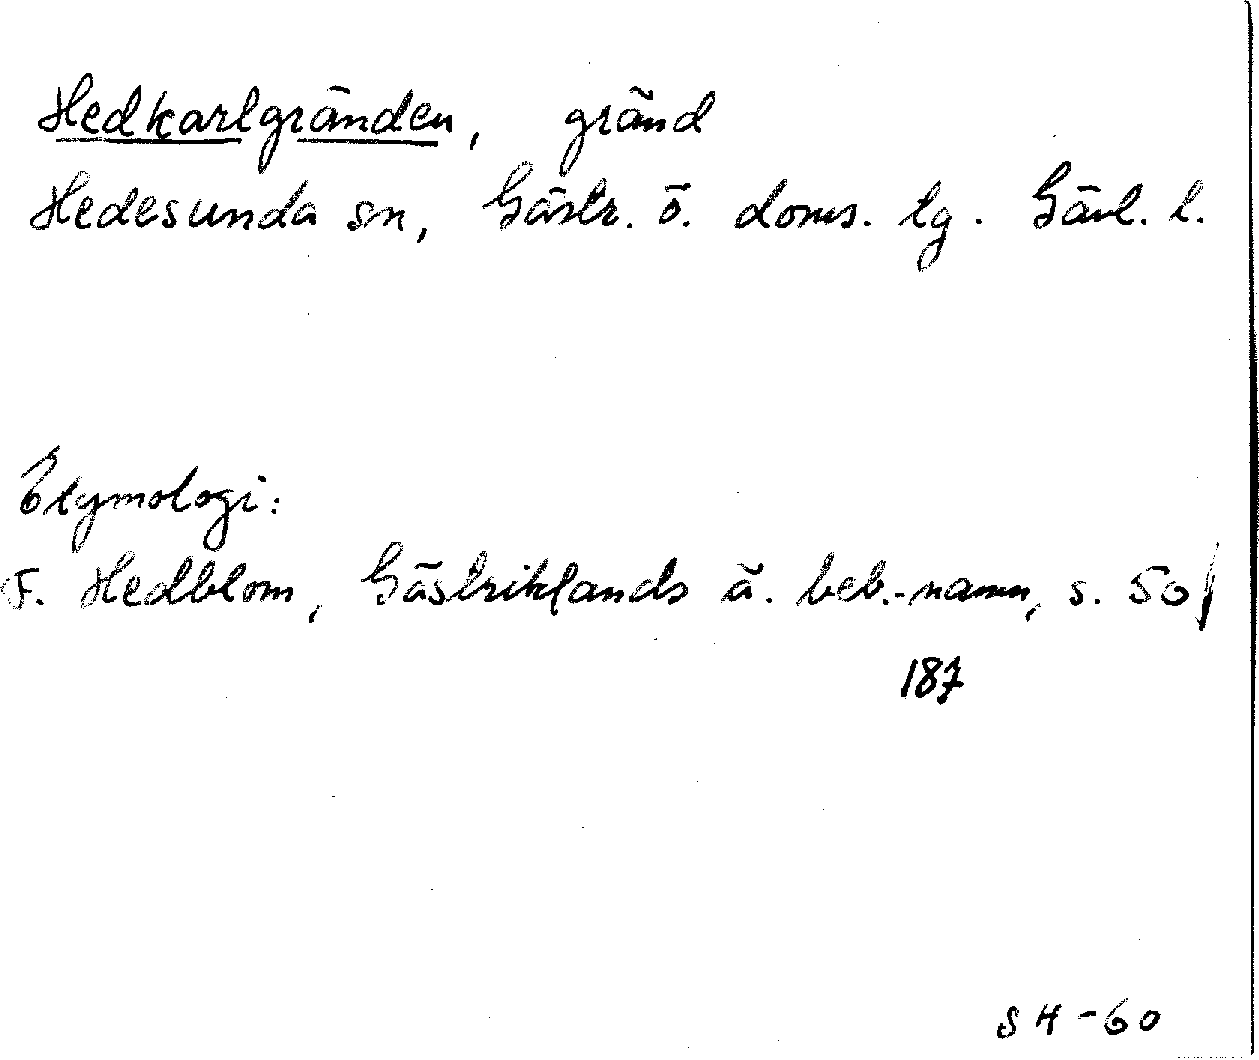 Hedkarlgränden, gränd
Hedesunda sn, Gästr. ö. doms. tg. Gävl. l.
Etymologi:
F. Hedblom, Gästriklands ä. beb.-namn, s. 50f
187
SH-60